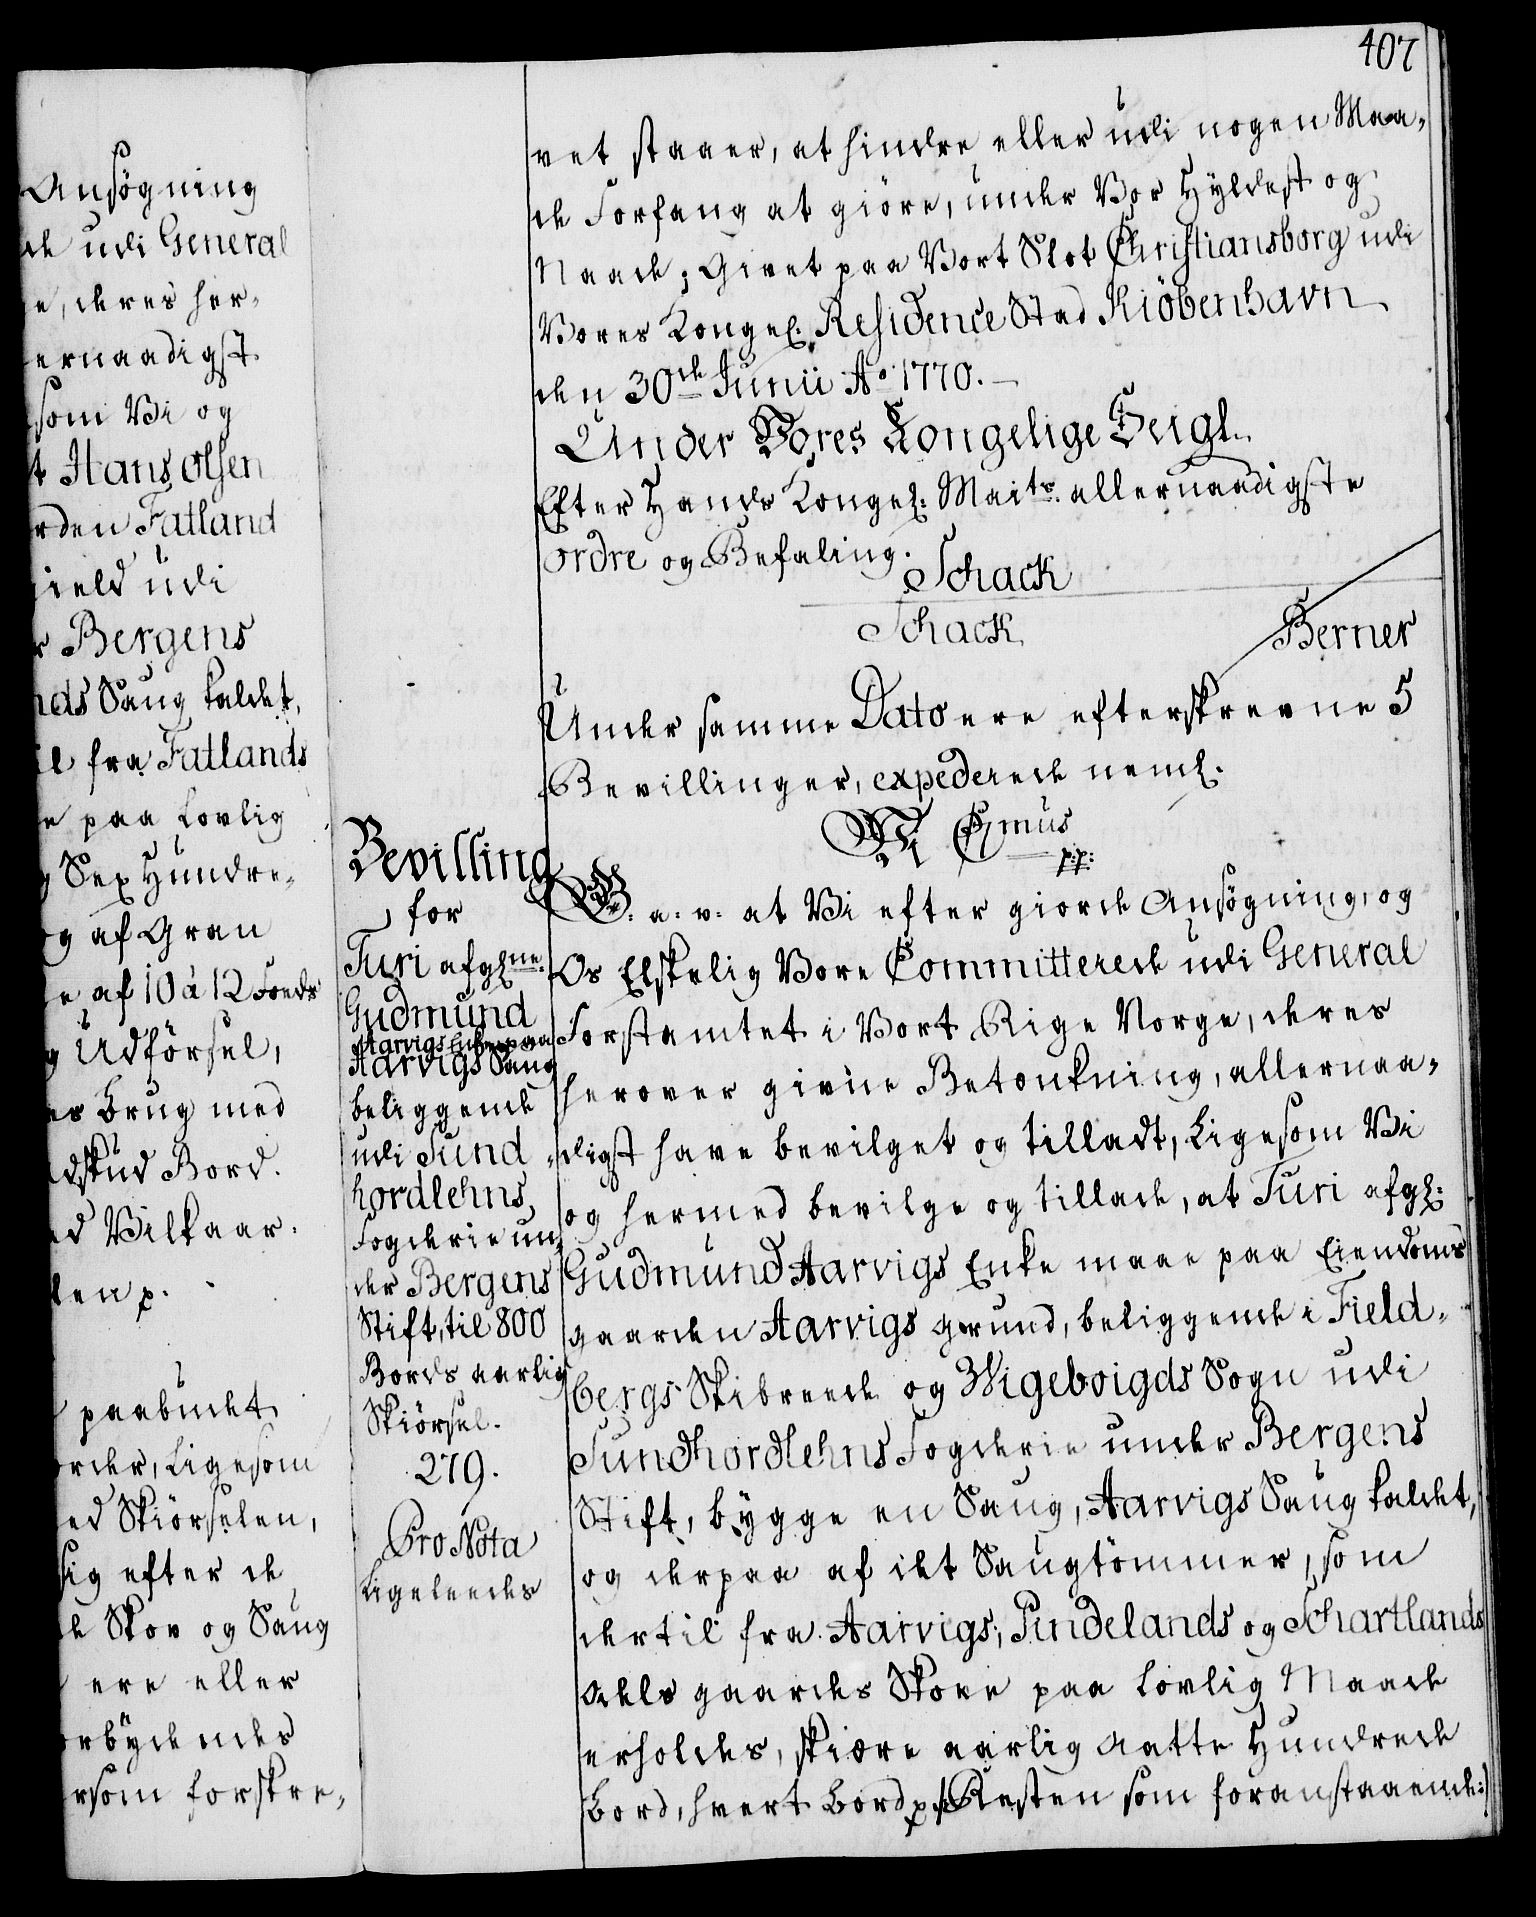 407
Ansøgning
de udi General
e, deres her-
ernaadigst
som Vi og
t Hans Olsen
rden Fatland
ield udi
r Bergens
nds Saug kaldet,
il fra Fatlands
e paa Lovlig
g Sex Hundre-
og af Gran
e af 10 à 12 Foeds
g Udförsel,
es Brug med
dskud Bord.
ed Vilkaar.
len p.
paabudet
order, Ligesom
ed Skiörselen,
sig efter de
de Skov og Saug
ere eller
orbydendes
rsom forskre-
vet staaer, at hindre eller udi nogen Maa-
de Forfang at giöre, under Vor Hyldest og
Naade; Givet paa Vort Slot Christiansborg udi
Vores Kongel. Residence Stad Kiöbenhavn
den 30de Junii Ao 1770.
Under Vores Kongelige Seigl.
Efter Hands Kongel: Maits. allernaadigste
ordre og Befaling.
Schack
Schack
Berner
Under samme Dato ere efterskrevne 5
Bevillinger, expederede neml.
Wi Chr̄mus
p:p:
Bevilling
for
Turi afglne.
Gudmund
Aarvigs Enke paa
Aarvigs Saug
beliggende
udi Sund-
hordlehns
Fogderie un-
der Bergens
Stift, til 800
Bords aarlig
Skiörsel.
279.
Pro Nota
Ligeleedes
G. a: v: at Vi efter giorde Ansögning, og
Os Elskelig Vore Committerede udi General
Forstamtet i Vort Rige Norge, deres
herover givne Betænkning, allernaa-
digst have bevilget og tilladt, Ligesom Vi
og hermed bevilge og tillade, at Turi afgl:
Gudmund Aarvigs Enke maae paa Eiendoms
gaarden Aarvigs grund, beliggende i Field-
bergs Skibreede og Wigeboigds Sogn udi
Sundhordlehns Fogderie under Bergens
Stift, bygge en Saug, Aarvigs Saug kaldet,
og derpaa af det Saugtömmer, som
dertil fra Aarvigs, Pindelands og Schartlands
Odels gaardes Skove paa Lovlig Maade
erholdes, skiære aarlig Aatte Hundrede
Bord, hvert Bord p. (:Resten som foranstaaende:)